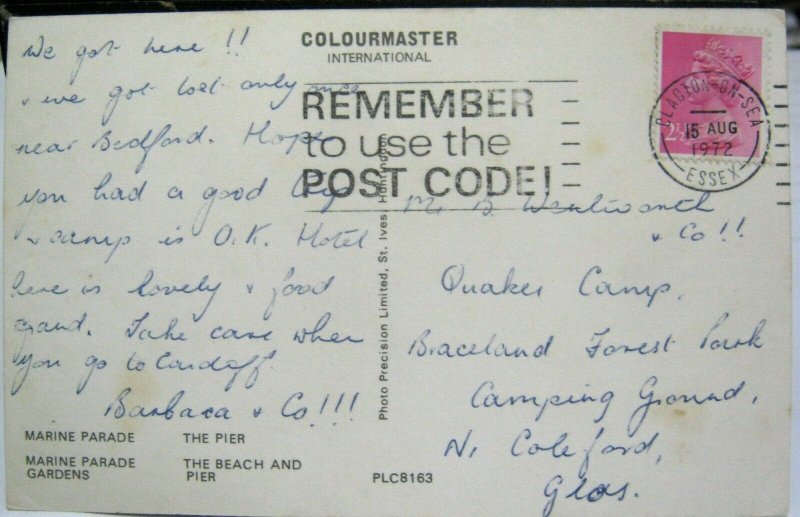 We got here !!
& we got lost only once
near Bedford. Hope
you had a good trip
& camp is O.K. Hotel
here is lovely & food
grand. Take care when
you go to Cardiff.
Barbara & Co!!!
MARINE PARADE THE PIER
MARINE PARADE GARDENS THE BEACH AND PIER
COLOURMASTER
INTERNATIONAL
REMEMBER
to use the
POST CODE!
Photo Precision Limited, St. Ives, Huntingdon
PLC8163
2½
CLACTON-ON-SEA
15 AUG
1972
ESSEX
Mr B. Wentworth
& Co!!
Quaker Camp,
Braceland Forest Park
Camping Ground,
Nr Coleford,
Glos.